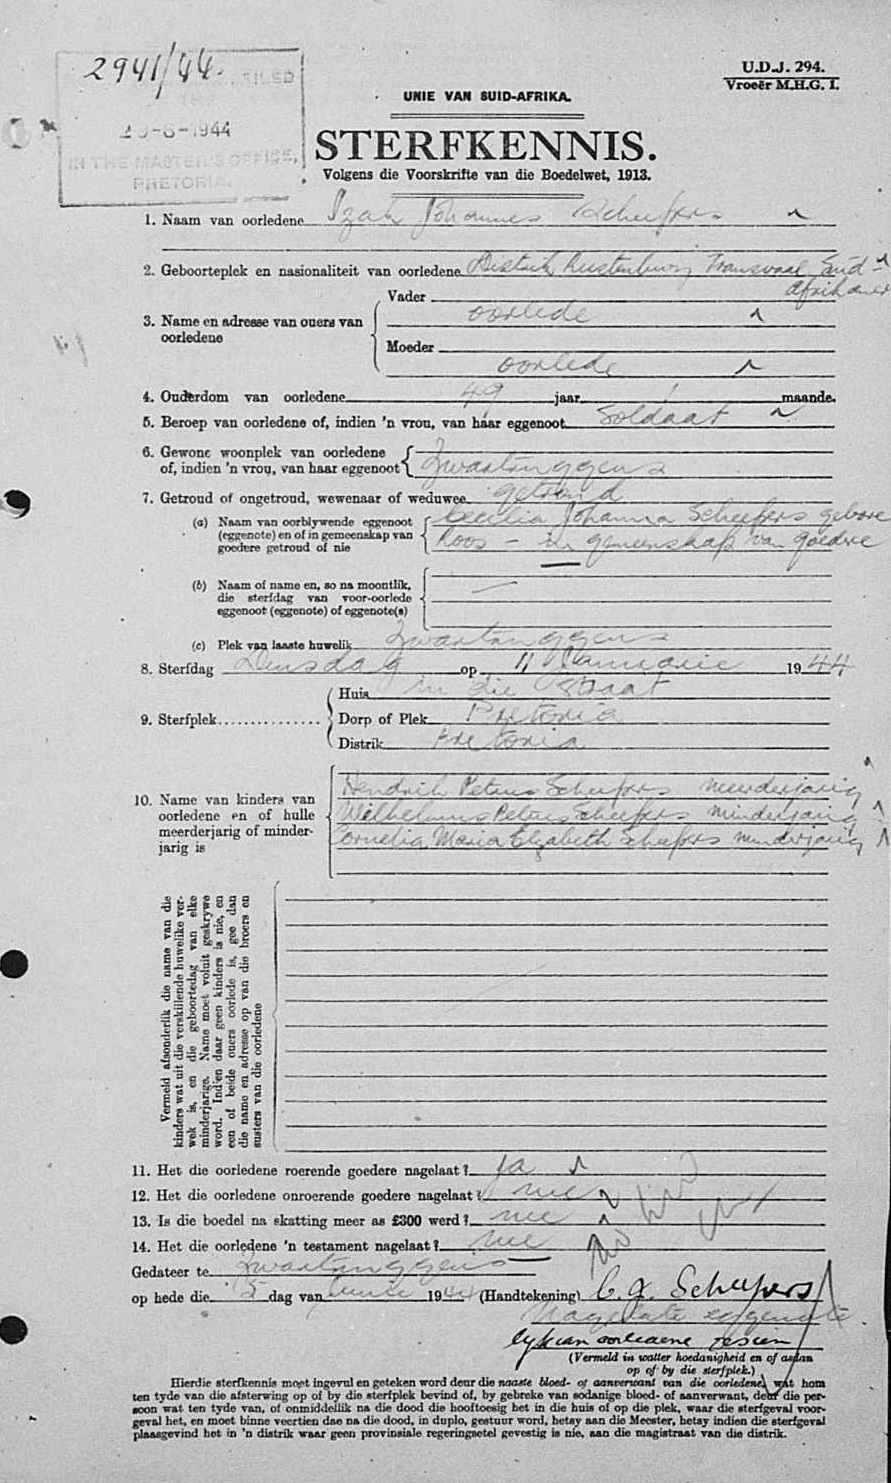 2941/44.
FILED
THE
29-6-1944
IN THE MASTER'S OFFICE,
PRETORIA.
U.D.J. 294.
Vroeër M.H.G. I.
UNIE VAN SUID-AFRIKA.
STERFKENNIS.
Volgens die Voorskrifte van die Boedelwet, 1913.
1. Naam van oorledene Izak Johannes Scheepers
2. Geboorteplek en nasionaliteit van oorledene Distrik Rustenburg Transvaal Suid-
Afrikaner
3. Name en adresse van ouers van oorledene
Vader
oorlede
Moeder
oorlede
4. Ouderdom van oorledene 49 jaar maande.
5. Beroep van oorledene of, indien 'n vrou, van háar eggenoot Soldaat
6. Gewone woonplek van oorledene
of, indien 'n vrou, van haar eggenoot
7. Getroud of ongetroud, wewenaar of weduwee getroud
(a) Naam van oorblywende eggenoot Cecilia Johanna Scheepers gebore
(eggenote) en of in gemeenskap van Roos - in gemeenskap van goedere
goedere getroud of nie
(b) Naam of name en, so na moontlik,
die sterfdag van voor-oorlede
eggenoot (eggenote) of eggenote(s)
(c) Plek van laaste huwelik
8. Sterfdag Dinsdag op 11 Januarie 1944
9. Sterfplek
Huis in die straat
Dorp of Plek Pretoria
Distrik Pretoria
10. Name van kinders van
oorledene en of hulle
meerderjarig of minder-
jarig is
Hendrik Petrus Scheepers meerderjarig
Wilhelmus Petrus Scheepers minderjarig
Cornelia Maria Elizabeth Scheepers minderjarig
Vermeld afsonderlik die name van die
kinders wat uit die verskillende huwelike ver-
wek is, en die geboortedag van elke
minderjarige. Name moet voluit geskrywe
word. Indien daar geen kinders is nie, en
een of beide ouers oorlede is, gee dan
die name en adresse op van die broers en
susters van die oorledene
11. Het die oorledene roerende goedere nagelaat? Ja
12. Het die oorledene onroerende goedere nagelaat? nee
13. Is die boedel na skatting meer as £300 werd? nee
14. Het die oorledene 'n testament nagelaat? nee
Gedateer te
op hede die 15 dag van Junie 1944 (Handtekening) C. J. Scheepers
Nagelate eggenote.
(Vermeld in watter hoedanigheid en of aldan
op of by die sterfplek.)
Hierdie sterfkennis moet ingevul en geteken word deur die naaste bloed- of aanverwant van die oorledene, wat hom
ten tyde van die afsterwing op of by die sterfplek bevind of, by gebreke van sodanige bloed- of aanverwant, deur die per-
soon wat ten tyde van, of onmiddellik na die dood die hooftoesig het in die huis of op die plek, waar die sterfgeval voor-
geval het, en moet binne veertien dae na die dood, in duplo, gestuur word, hetsy aan die Meester, hetsy indien die sterfgeval
plaasgevind het in 'n distrik waar geen provinsiale regeringsetel gevestig is nie, aan die magistraat van die distrik.